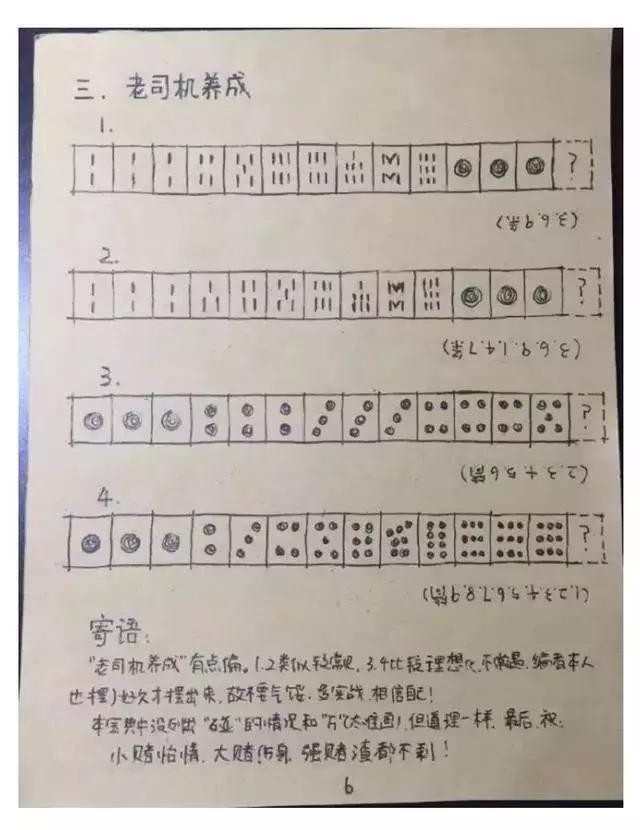 三、老司机养成
1.
?
(3.6.9条)
2.
?
(3.6.9.1.4.7条)
3.
?
(2.3.4.5.6筒)
4.
?
(1.2.3.4.5.6.7.8.9筒)
寄语:
"老司机养成"有点偏。1.2类似较常见, 3.4比较理想化,不常遇,编者本人
也摆)好久才摆出来,故不要气馁,多实战,相信自己!
本宝典中没列出"碰"的情况和"万"(太难画),但道理一样,最后,祝:
小赌怡情,大赌伤身,强赌渣都不剩!
6